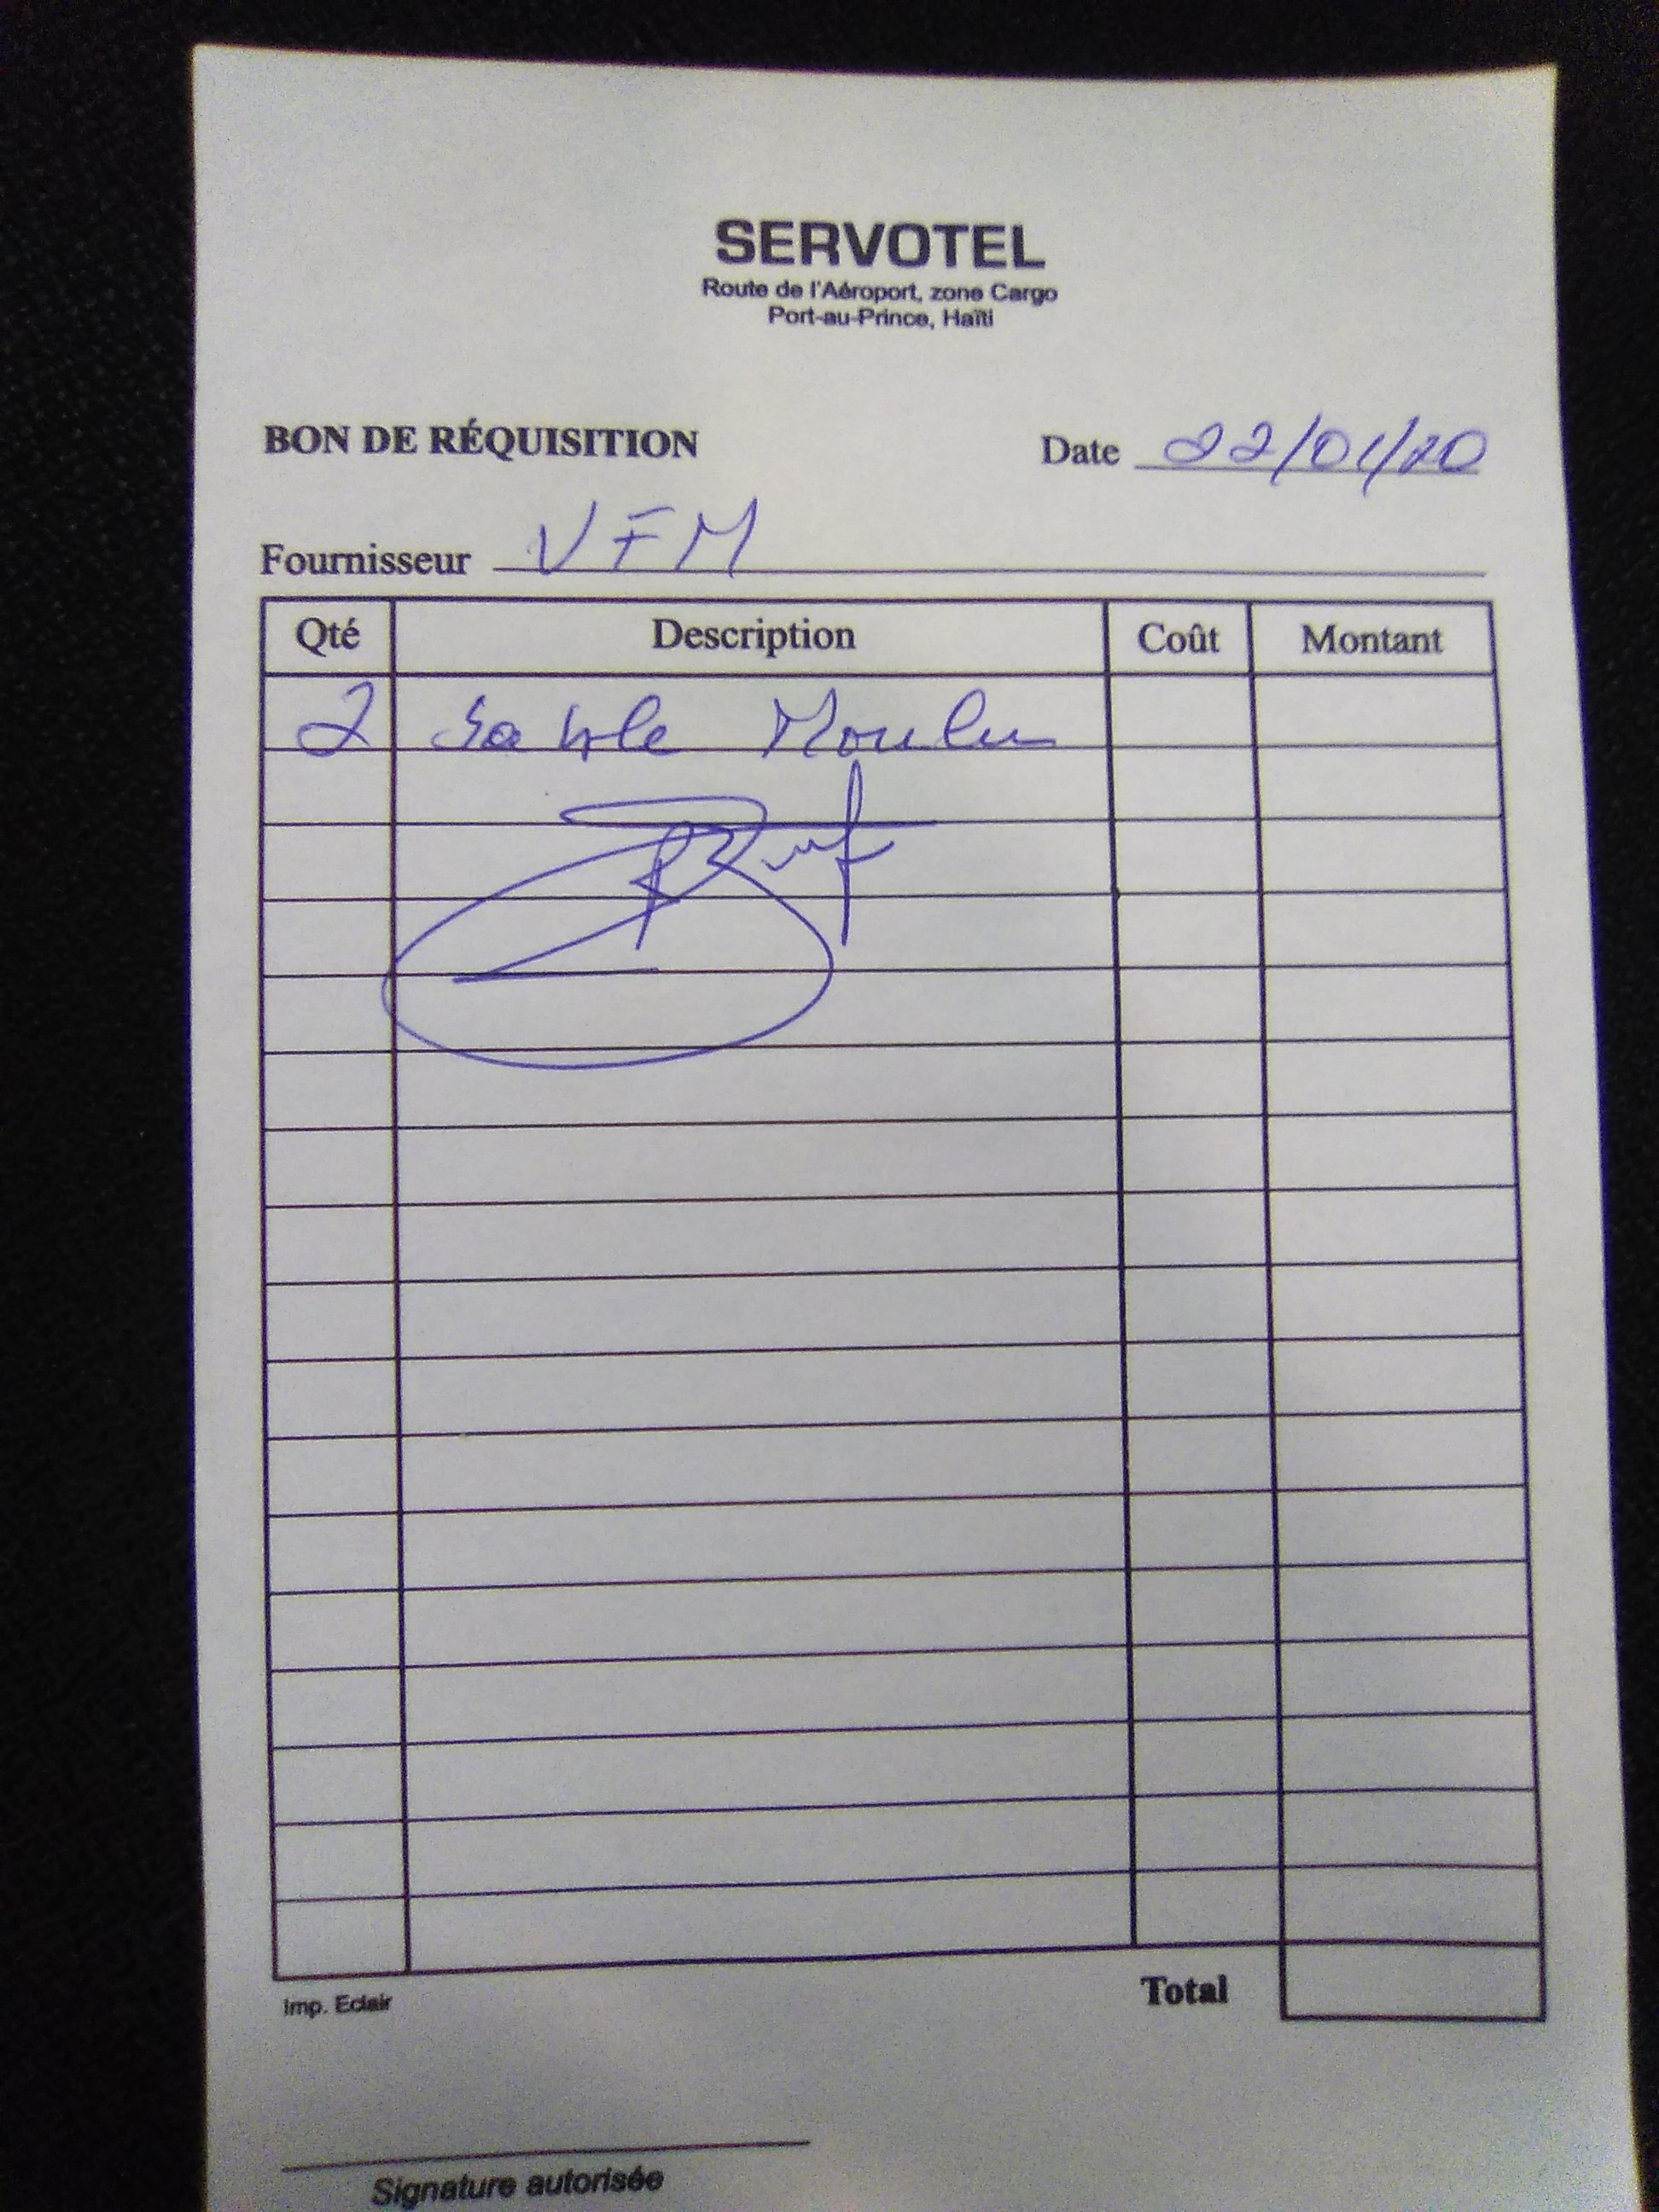 SERVOTEL
Route de l'Aéroport, zone Cargo
Port-au-Prince, Haïti
BON DE RÉQUISITION Date 22/01/20
Fournisseur VFM
Qté Description Coût Montant
2 Sable Moulu
Imp. Eclair Total
Signature autorisée